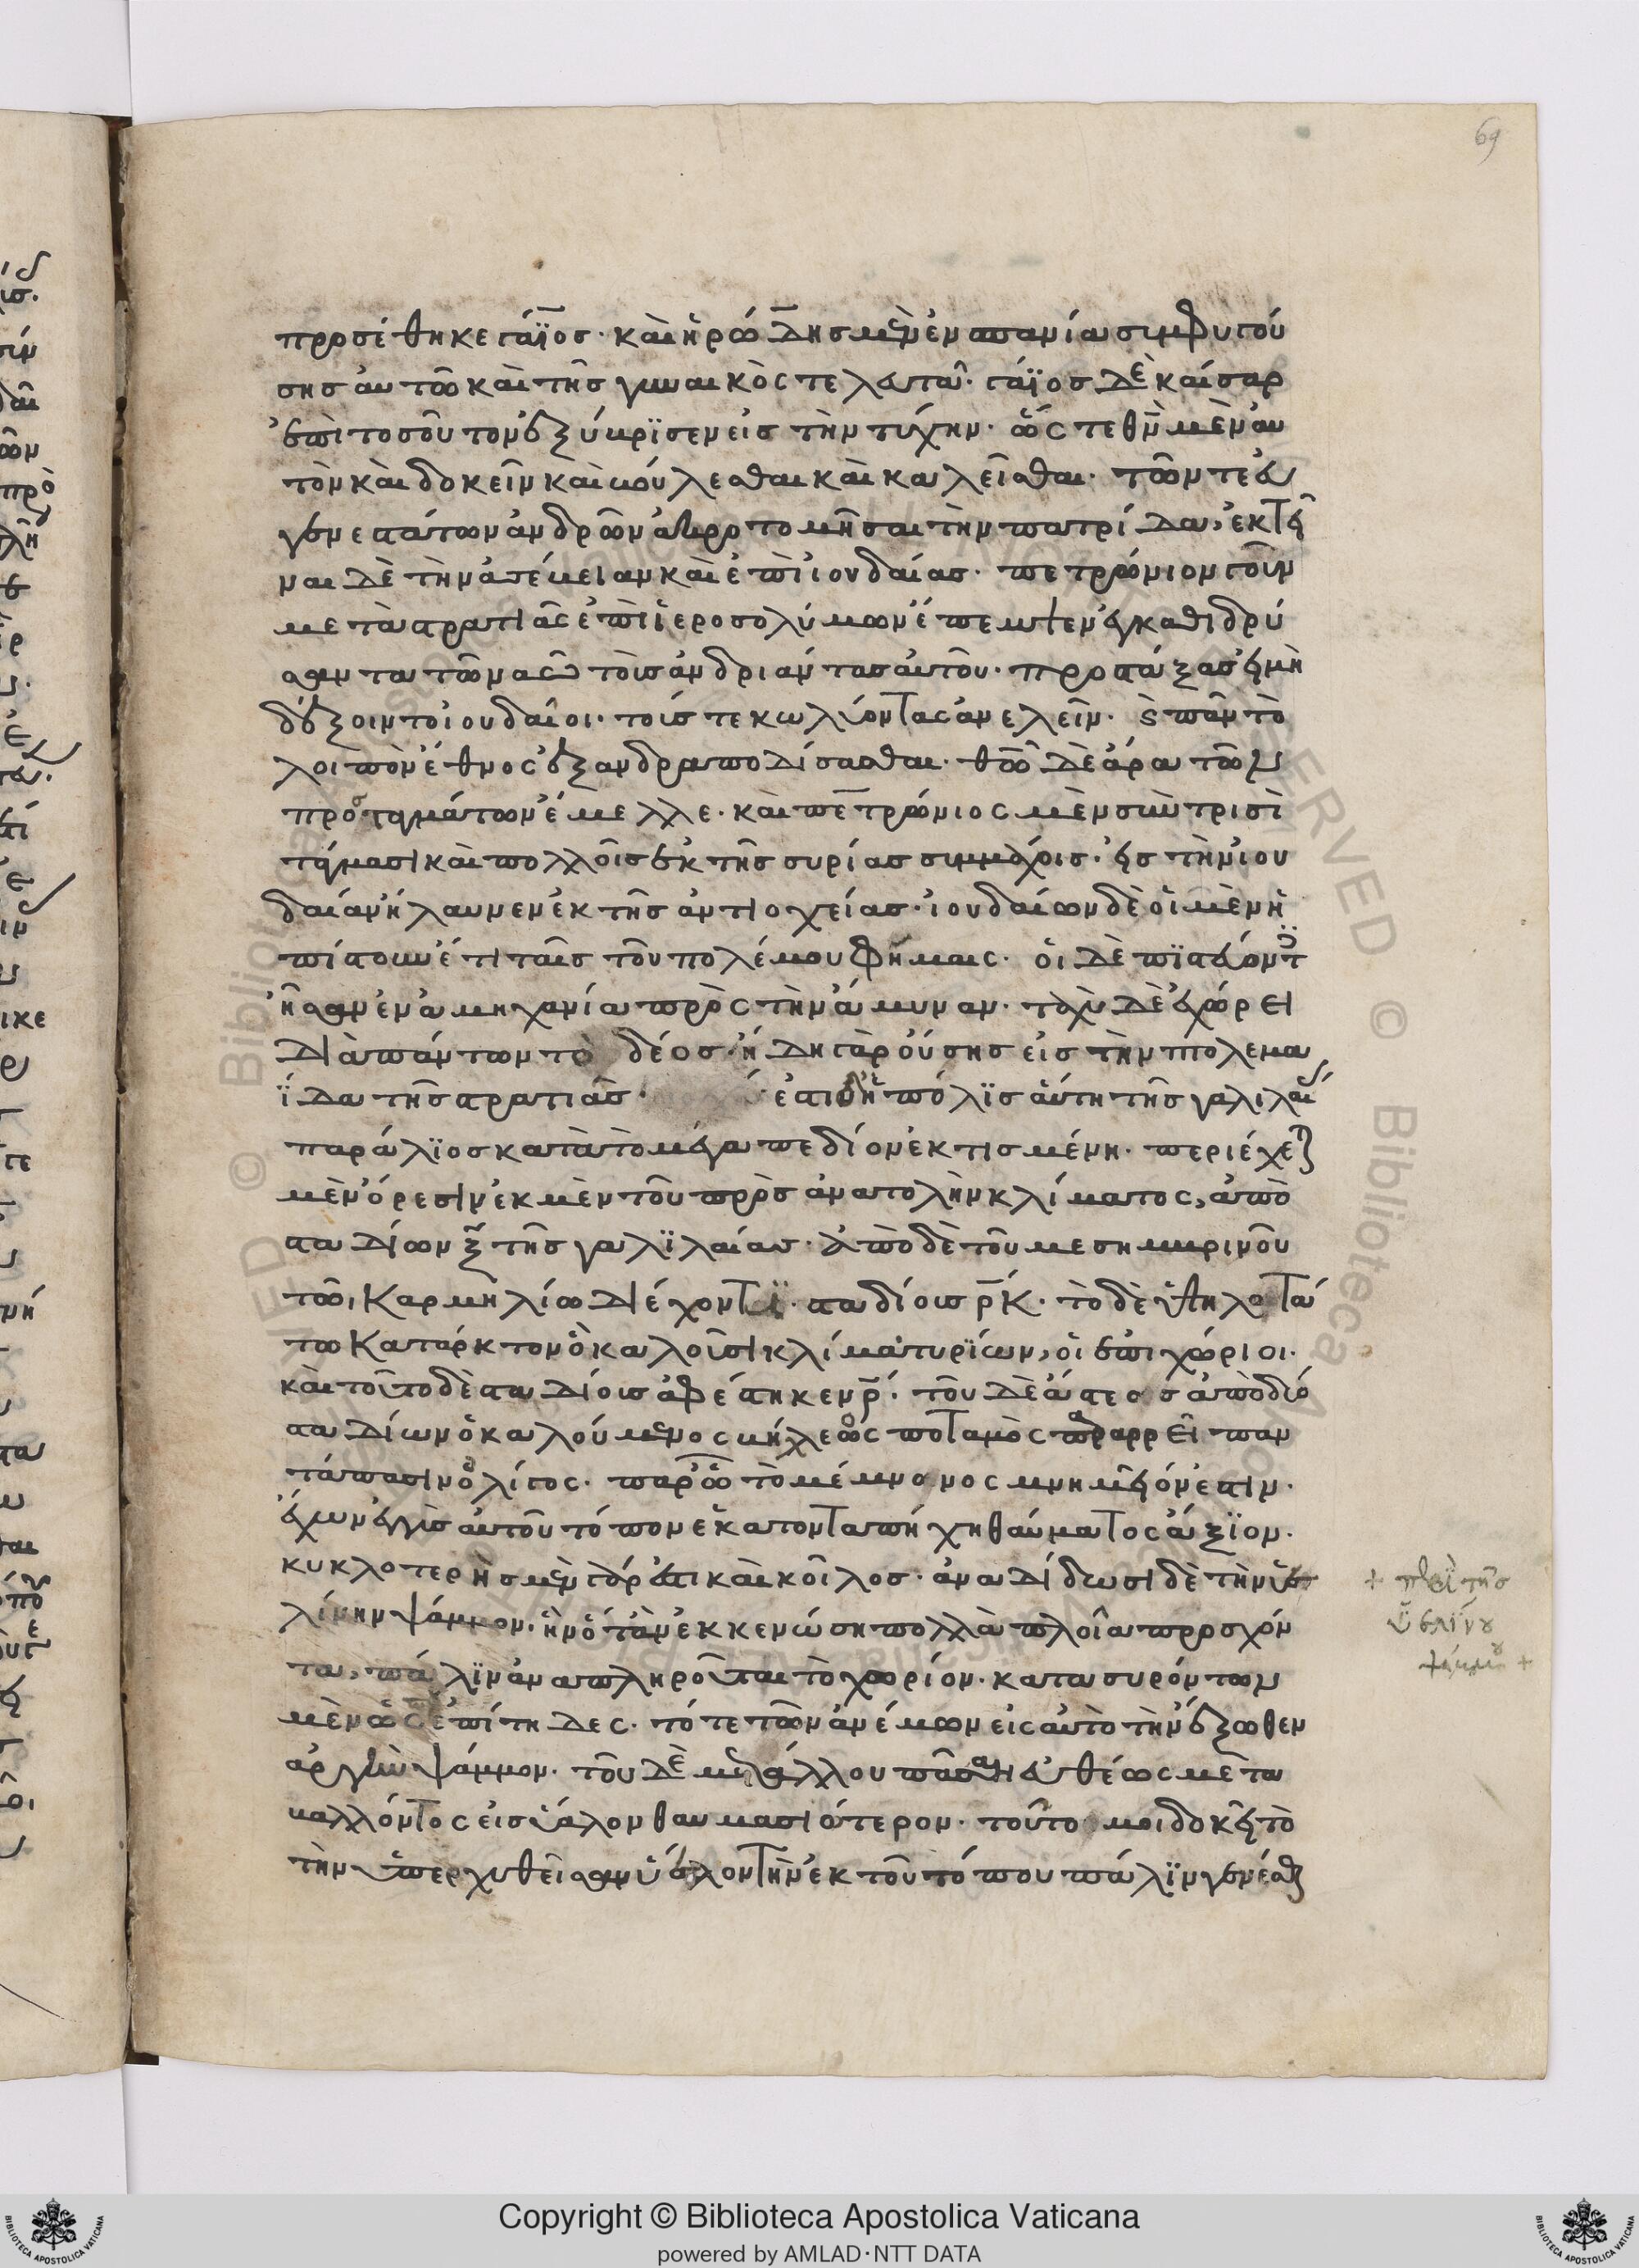 69
προσέθηκε γάϊος· καὶ ἡρώδης μὲν ἐν σπανία συμφυγού
σης αὐτῶ καὶ τῆς γυναικὸς τελευτᾶ· γάϊος δὲ καίσαρ
ἐπὶ τοσοῦτον ἐξύβρϊσεν εἰς τὴν τύχην· ὥς τε θν̅ μὲν αυ
τὸν καὶ δοκεῖν καὶ βούλεσθαι καὶ καλεῖσθαι· τῶν τε ευ
γενεστάτων ἀνδρῶν ἀκροτομῆσαι τὴν πατρίδα, ἐκτεῖ
ναι δὲ τὴν ἀσέβειαν καὶ ἐπὶ ἰουδαίας· πετρώνιον γοῦν
μετὰ στρατιᾶς ἐπὶ ἱεροσολύμων ἔπεμψεν ἐγκαθιδρύ
σοντα τῶ ναῶ τοὺς ἀνδριάντας αὐτοῦ· προστάξας εἰ μὴ
δέξοιντο ἰουδαῖοι· τούς τε κωλύοντας ἀνελεῖν· ϛ πᾶν τὸ
λοιπὸν ἔθνος ἐξανδραποδίσασθαι· θῶ δὲ ἄρα τῶν
προσταγμάτων ἔμελλε· καὶ πετρώνιος μὲν σὺν τρισὶ
τάγμασι καὶ πολλοῖς ἐκ τῆς συρίας συμμάχοις· εἰς τὴν ἰου
δαίαν ἤλαυνεν ἐκ τῆς ἀντιοχείας· ἰουδαίων δὲ οἱ μὲν ἠ
πίστουν ἔτι ταῖς τοῦ πολέμου φήμαις· οἱ δὲ πϊστεύοντ
ἦσαν ἐν ἀμηχανία πρὸς τὴν ἄμυναν· ταχὺ δὲ ἐχώρει
διὰ πάντων τὸ δέος· ἤδη γὰρ οὔσης εἰς τὴν πτολεμα
ΐδα τῆς στρατιᾶς· ἐστι δ' ἡ πόλϊς αὕτη τῆς γαλιλαί
παράλϊος κατὰ τὸ μέγα πεδίον ἐκτισμένη· περιέχε
μὲν ὄρεσιν ἐκ μὲν τοῦ πρὸς ἀνατολὴν κλίματος, ἀπὸ
σταδίων ξ̅ τῆς γαλϊλαίας· ἀπὸ δὲ τοῦ μεσημβρινοῦ
τῶ, Καρμηλίω διέχοντι· σταδίοις ρ̅κ̅· τὸ δὲ ὑψηλοτά
τω Κατάρκτον ὃ καλοῦσι κλίμα τυρϊίων, οἱ ἐπιχώριοι·
καὶ τοῦτο δὲ σταδίοις ἀφέστηκεν ρ̅· τοῦ δὲ ἄστεος ἀπὸ δύο
σταδίων ὁ καλούμενος βήλεος ποταμὸς παραρρεῖ παν
τάπασιν ὀλίγος· παρ' ὧ τὸ μέμνονος μνημεῖόν ἐστιν·
ἔχων ἐγγὺς αὐτοῦ τόπον ἑκατονταπήχη θαύματος ἄξϊον·
κυκλοτερὴς μὲν γάρ ἐστι καὶ κοῖλος· ἀναδίδωσι δὲ τὴν ὑε
λίνην ψάμμον· ἣν ὅταν ἐκκενώση πολλὰ πλοῖα προσχόν
τα, πάλϊν ἀναπληροῦται τὸ χωρίον· κατασυρόντων
μὲν ὥσπερ ἐπίτηδες· τότε τῶν ἀνέμων εἰς αὐτὸ τὴν ἔξωθεν
ἀργὴν ψάμμον· τοῦ δὲ μετάλλου πᾶσαν εὐθέως μετα
βαλλόντος εἰς ὕαλον θαυμασιότερον· τοῦτο μοι δοκεῖ τὸ
τὴν ὑπερχυθεῖσαν ὕαλον τὴν ἐκ τοῦ τόπου πάλϊν γενέσθ
+ περὶ τῆς
ὑελίνου
ψάμμου +
Copyright © Biblioteca Apostolica Vaticana
powered by AMLAD·NTT DATA